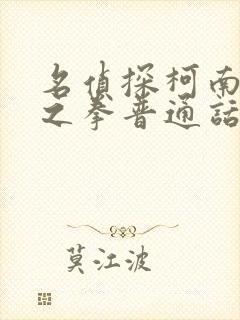 名侦探柯南
之拳普通话
莫江波